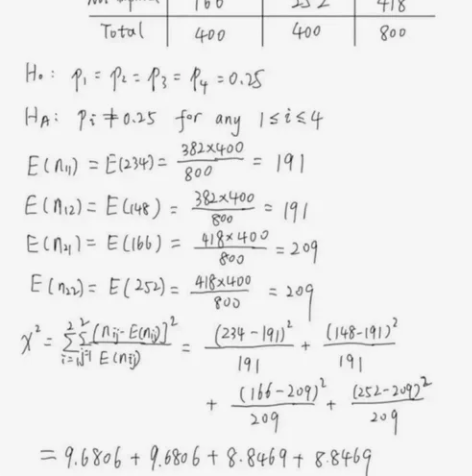 166 252 418
Total 400 400 800
H₀: p₁ = p₂ = p₃ = p₄ = 0.25
H_A: pᵢ ≠ 0.25 for any 1 ≤ i ≤ 4
E(n₁₁) = E(234) = 382×400/800 = 191
E(n₁₂) = E(148) = 382×400/800 = 191
E(n₂₁) = E(166) = 418×400/800 = 209
E(n₂₂) = E(252) = 418×400/800 = 209
χ² = Σ²ᵢ₌₁ Σ²ⱼ₌₁ [nᵢⱼ - E(nᵢⱼ)]²/E(nᵢⱼ) = (234-191)²/191 + (148-191)²/191
+ (166-209)²/209 + (252-209)²/209
= 9.6806 + 9.6806 + 8.8469 + 8.8469